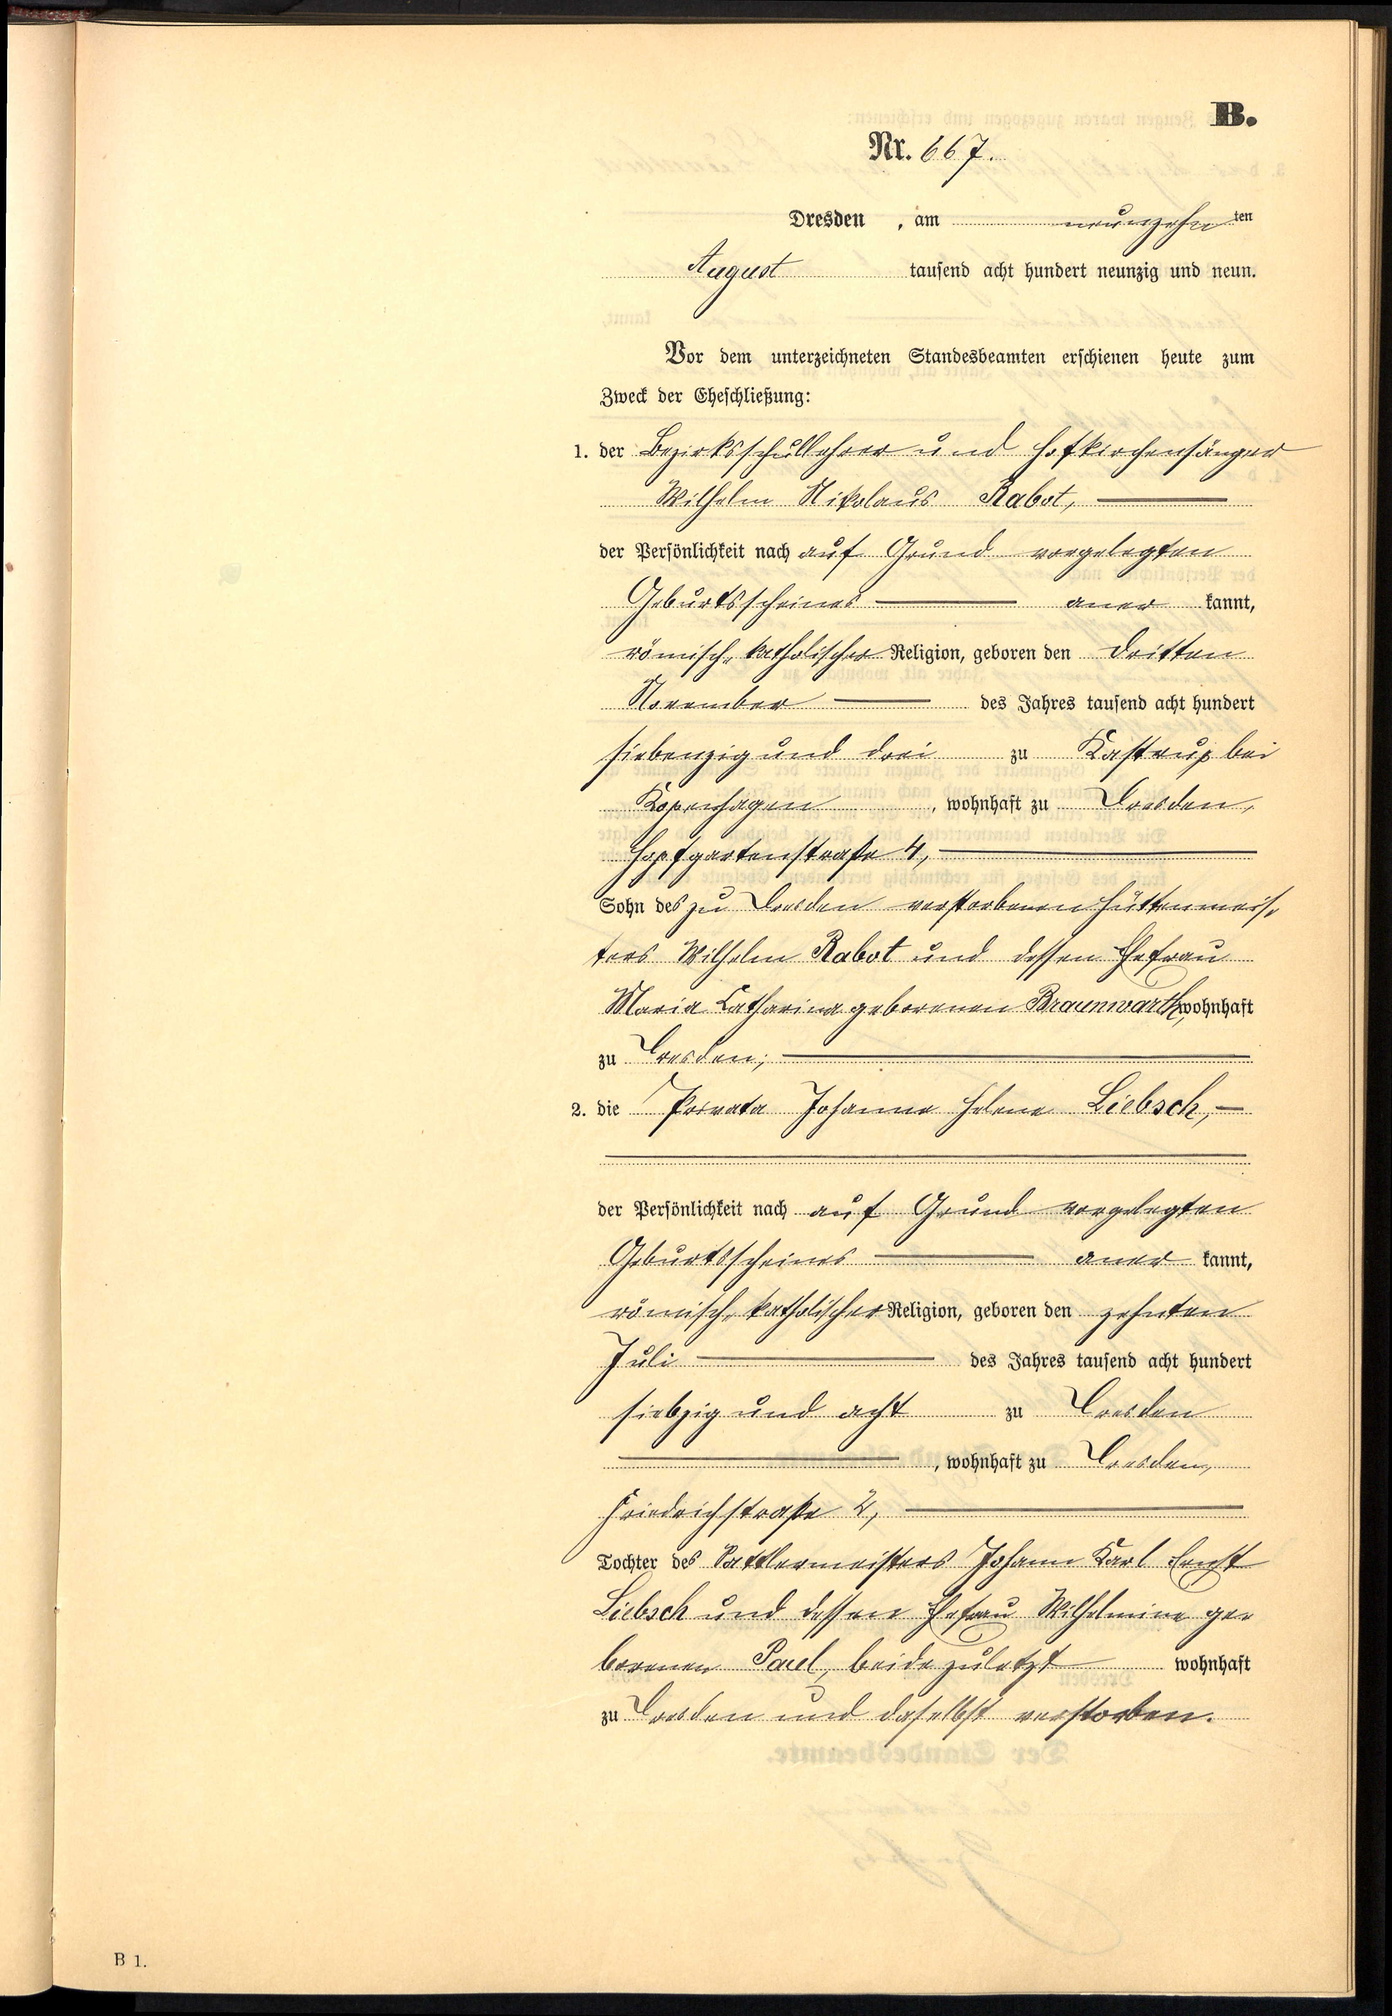 B.
Nr. 667.
Dresden, am neunzehn ten
August tausend acht hundert neunzig und neun.
Vor dem unterzeichneten Standesbeamten erschienen heute zum
Zweck der Eheschließung:
1. der Bezirksschullehrer und Hofkirchensänger
Wilhelm Nikolaus Rabot,
der Persönlichkeit nach auf Grund vorgelegten
Geburtsscheines aner kannt,
römisch-katholischer Religion, geboren den dritten
November des Jahres tausend acht hundert
siebenzig und drei zu Kastrup bei
Kopenhagen, wohnhaft zu Dresden,
Hopfgartenstraße 4,
Sohn des zu Dresden verstorbenen Hüttenmeis-
ters Wilhelm Rabot und dessen Ehefrau
Maria Catharina geborenen Braunwarth, wohnhaft
zu Dresden;
2. die Privata Johanne Helene Liebsch,
der Persönlichkeit nach auf Grund vorgelegten
Geburtsscheines aner kannt,
römisch-katholischer Religion, geboren den zehnten
Juli des Jahres tausend acht hundert
siebzig und acht zu Dresden
, wohnhaft zu Dresden,
Friedrichstraße 2,
Tochter des Sattlermeisters Johann Karl Ernst
Liebsch und dessen Ehefrau Wilhelmine ge-
borenen Paul, beide zuletzt wohnhaft
zu Dresden und daselbst verstorben.
B 1.